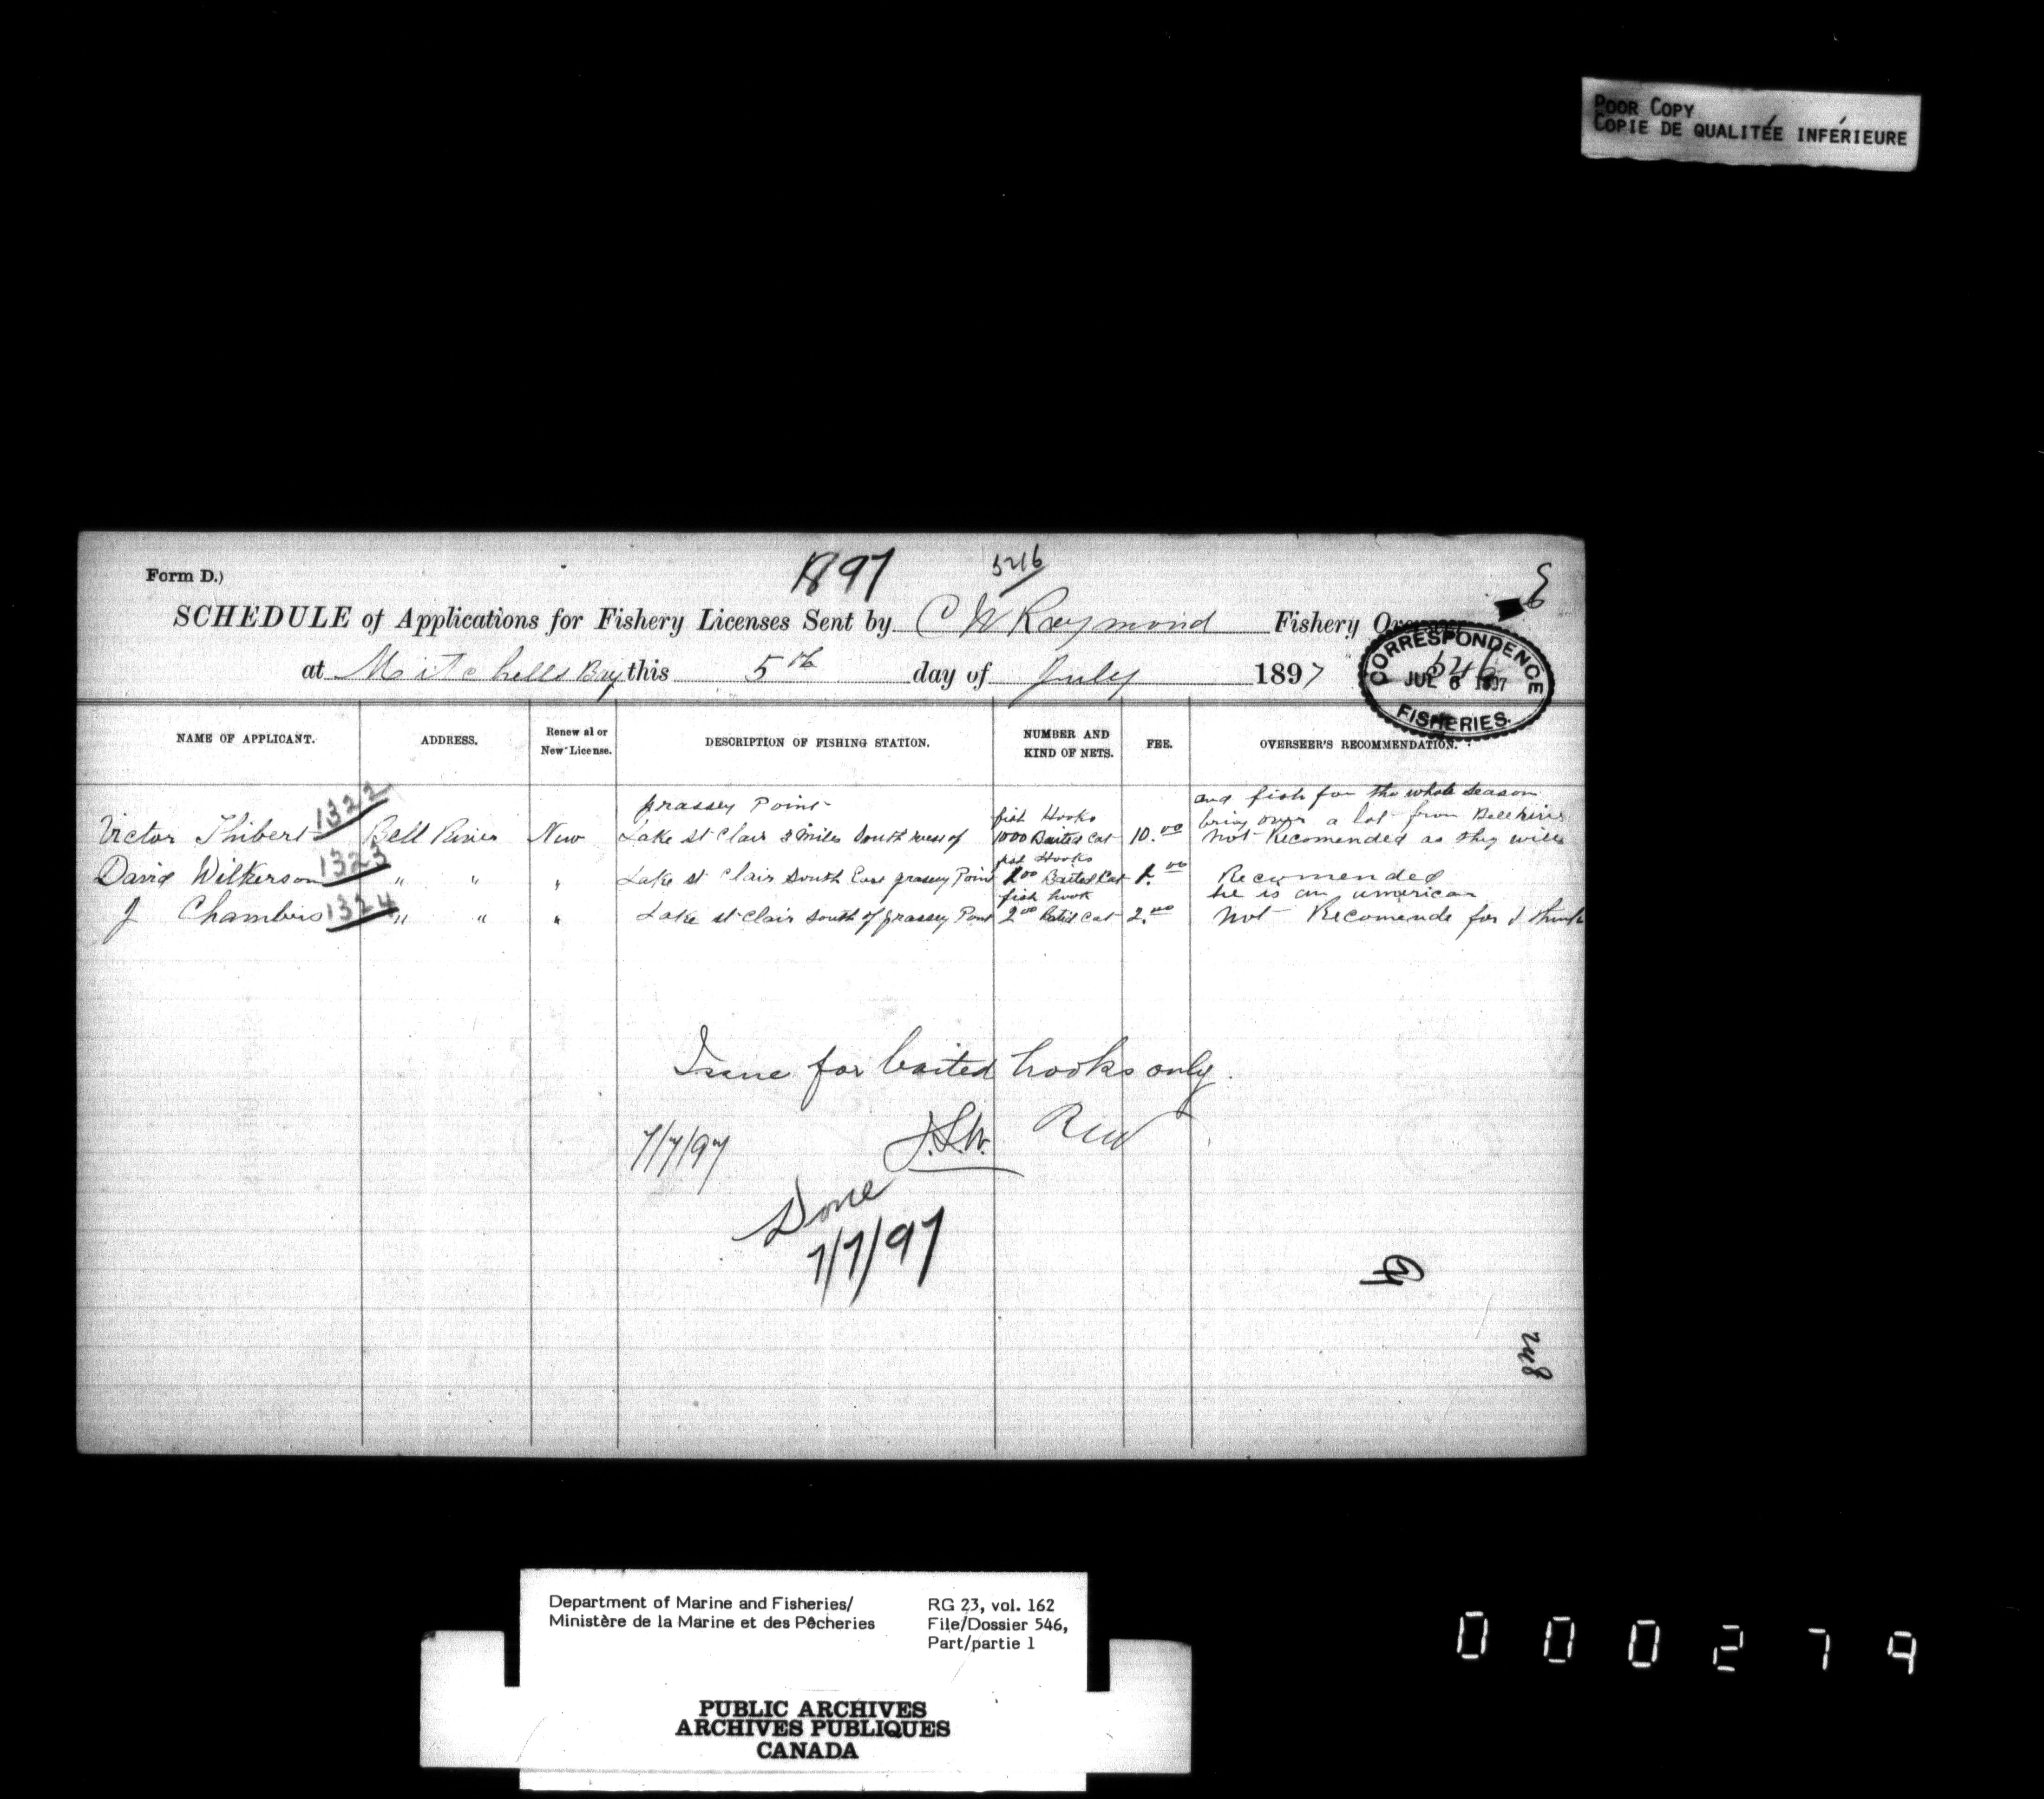 POOR COPY
COPIE DE QUALITÉE INFÉRIEURE
1897
Form D.)
SCHEDULE of Applications for Fishery Licenses Sent by C W Raymond Fishery
at Mitchells Bay this 5th day of July 1897
CORRESPONDENCE
546
JUL 6 1897
FISHERIES.
NAME OF APPLICANT. ADDRESS. Renewal or New License. DESCRIPTION OF FISHING STATION. NUMBER AND KIND OF NETS. FEE. OVERSEER'S RECOMMENDATION.
grassey Point fish Hooks and fish for the whole season
bring over a lot from Belleriver
Victor Thibert 1322 Bell River New Lake st Clair 3 miles South west of 1000 Baited Cat 10.00 not Recomended as they will
fish Hooks
David Wilkerson 1323 " " " Lake st Clair South East grassey Point Baited Cat Recomended
fish hook he is an american
J Chambers 1324 " " " Lake st Clair South of grassey Point 200 Batid Cat 2.00 not Recomende for I think
Issue for baited hooks only.
7/7/97
Done
7/7/97
Department of Marine and Fisheries/
Ministère de la Marine et des Pêcheries
RG 23, vol. 162
File/Dossier 546,
Part/partie 1
PUBLIC ARCHIVES
ARCHIVES PUBLIQUES
CANADA
000279